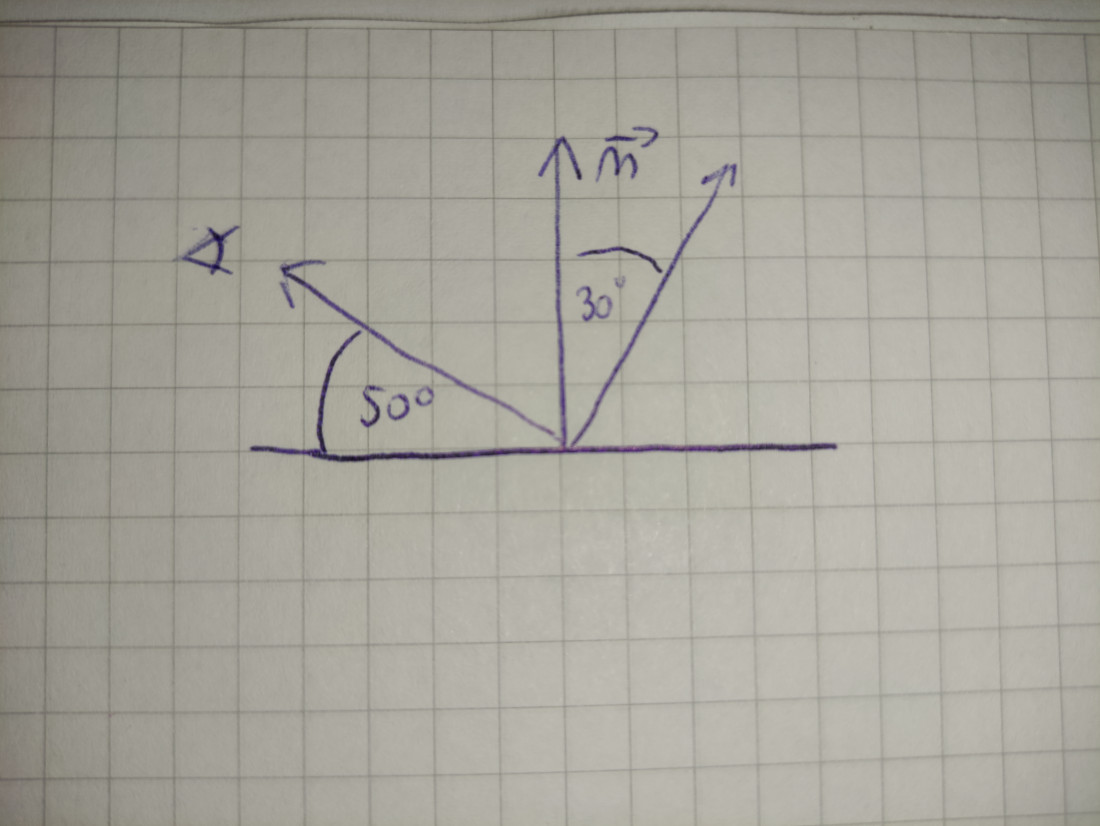 n⃗
30°
50°